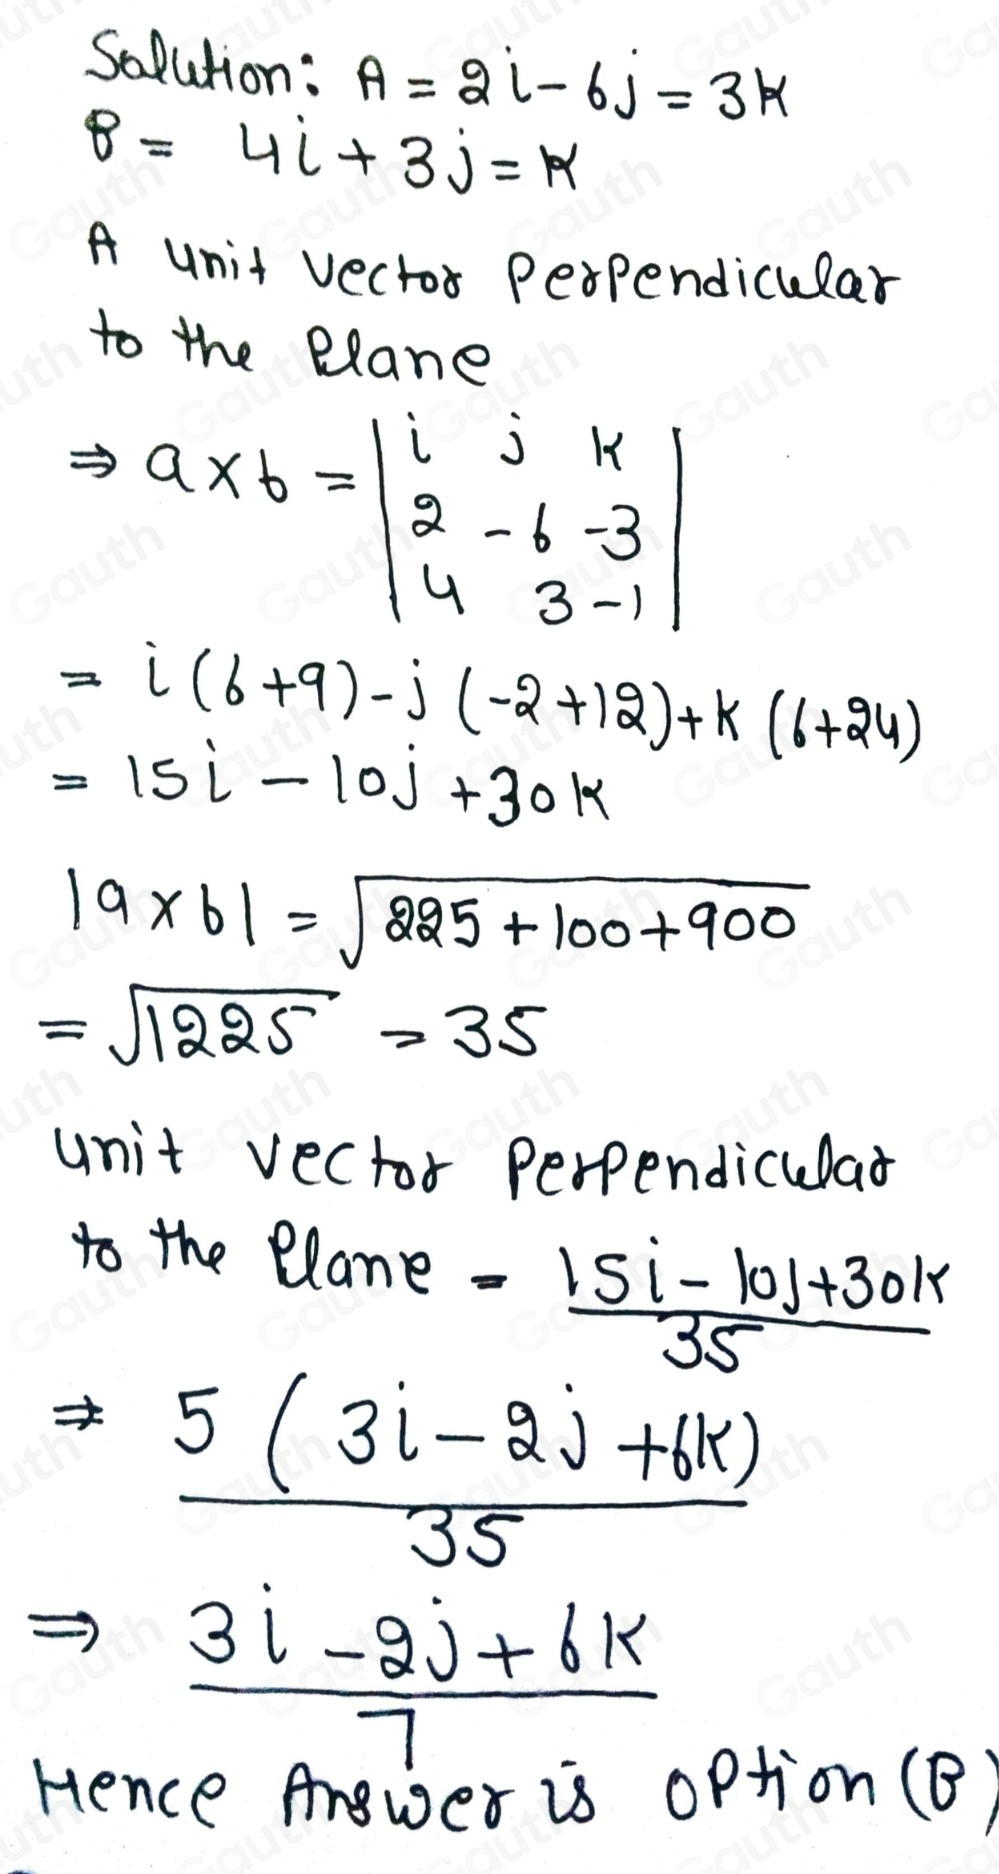 Solution: A = 2i - 6j = 3k
B = 4i + 3j = k
A unit vector Perpendicular
to the Plane
⇒ a × b = | i j k |
| 2 - 6 - 3 |
| 4 3 - 1 |
= i (6 + 9) - j (-2 + 12) + k (6 + 24)
= 15i - 10j + 30k
|a × b| = √225 + 100 + 900
= √1225 = 35
unit vector Perpendicular
to the Plane = 15i - 10j + 30k
35
⇒ 5 (3i - 2j + 6k)
35
⇒ 3i - 2j + 6k
7
Hence Answer is option (B)
Gauth